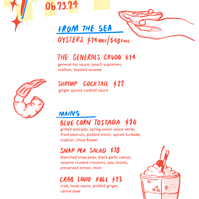 06.23.24
FROM THE SEA
OYSTERS $24 HALF/$48 FULL
THE GENERALS CRUDO $24
general tso sauce, peach supremes,
scallion, toasted sesame
SHRIMP COCKTAIL $22
ginger spiced cocktail sauce
MAINS
BLUE CORN TOSTADA $20
grilled avocado, spring onion sauce verde,
fried peanuts, pickled onion, spiced furikake,
scallion, chive flower
SNAP PEA SALAD $18
blanched snap peas, black garlic caesar,
sesame crusted croutons, pea shoots,
preserved lemon, mint
CRAB LOUIE ROLL $23
crab, louie sauce, pickled ginger,
carrot slaw